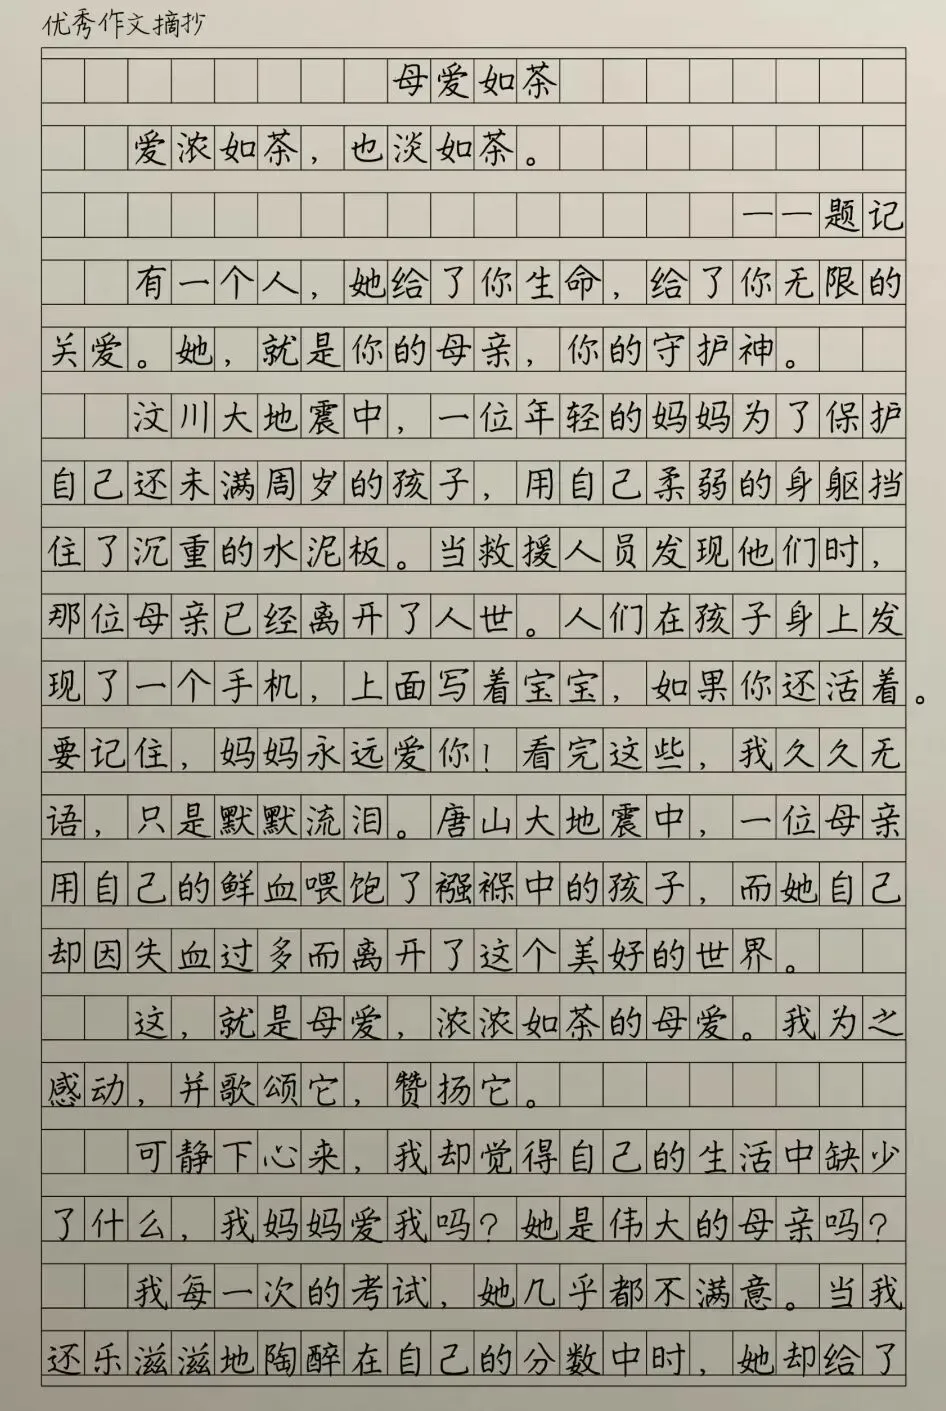 优秀作文摘抄
母爱如茶
爱浓如茶，也淡如茶。
——题记
有一个人，她给了你生命，给了你无限的
关爱。她，就是你的母亲，你的守护神。
汶川大地震中，一位年轻的妈妈为了保护
自己还未满周岁的孩子，用自己柔弱的身躯挡
住了沉重的水泥板。当救援人员发现他们时，
那位母亲已经离开了人世。人们在孩子身上发
现了一个手机，上面写着宝宝，如果你还活着。
要记住，妈妈永远爱你！看完这些，我久久无
语，只是默默流泪。唐山大地震中，一位母亲
用自己的鲜血喂饱了襁褓中的孩子，而她自己
却因失血过多而离开了这个美好的世界。
这，就是母爱，浓浓如茶的母爱。我为之
感动，并歌颂它，赞扬它。
可静下心来，我却觉得自己的生活中缺少
了什么，我妈妈爱我吗？她是伟大的母亲吗？
我每一次的考试，她几乎都不满意。当我
还乐滋滋地陶醉在自己的分数中时，她却给了